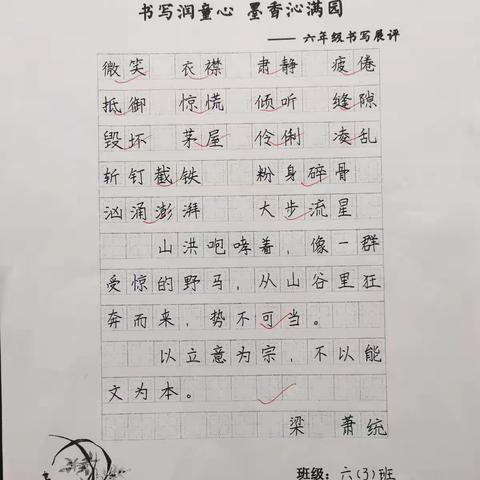 书写润童心 墨香沁满园
—— 六年级书写展评
微笑 衣襟 肃静 疲倦
抵御 惊慌 倾听 缝隙
毁坏 茅屋 伶俐 凌乱
斩钉截铁 粉身碎骨
汹涌澎湃 大步流星
山洪咆哮着，像一群
受惊的野马，从山谷里狂
奔而来，势不可当。
以立意为宗，不以能
文为本。
梁 萧统
班级：六(3)班